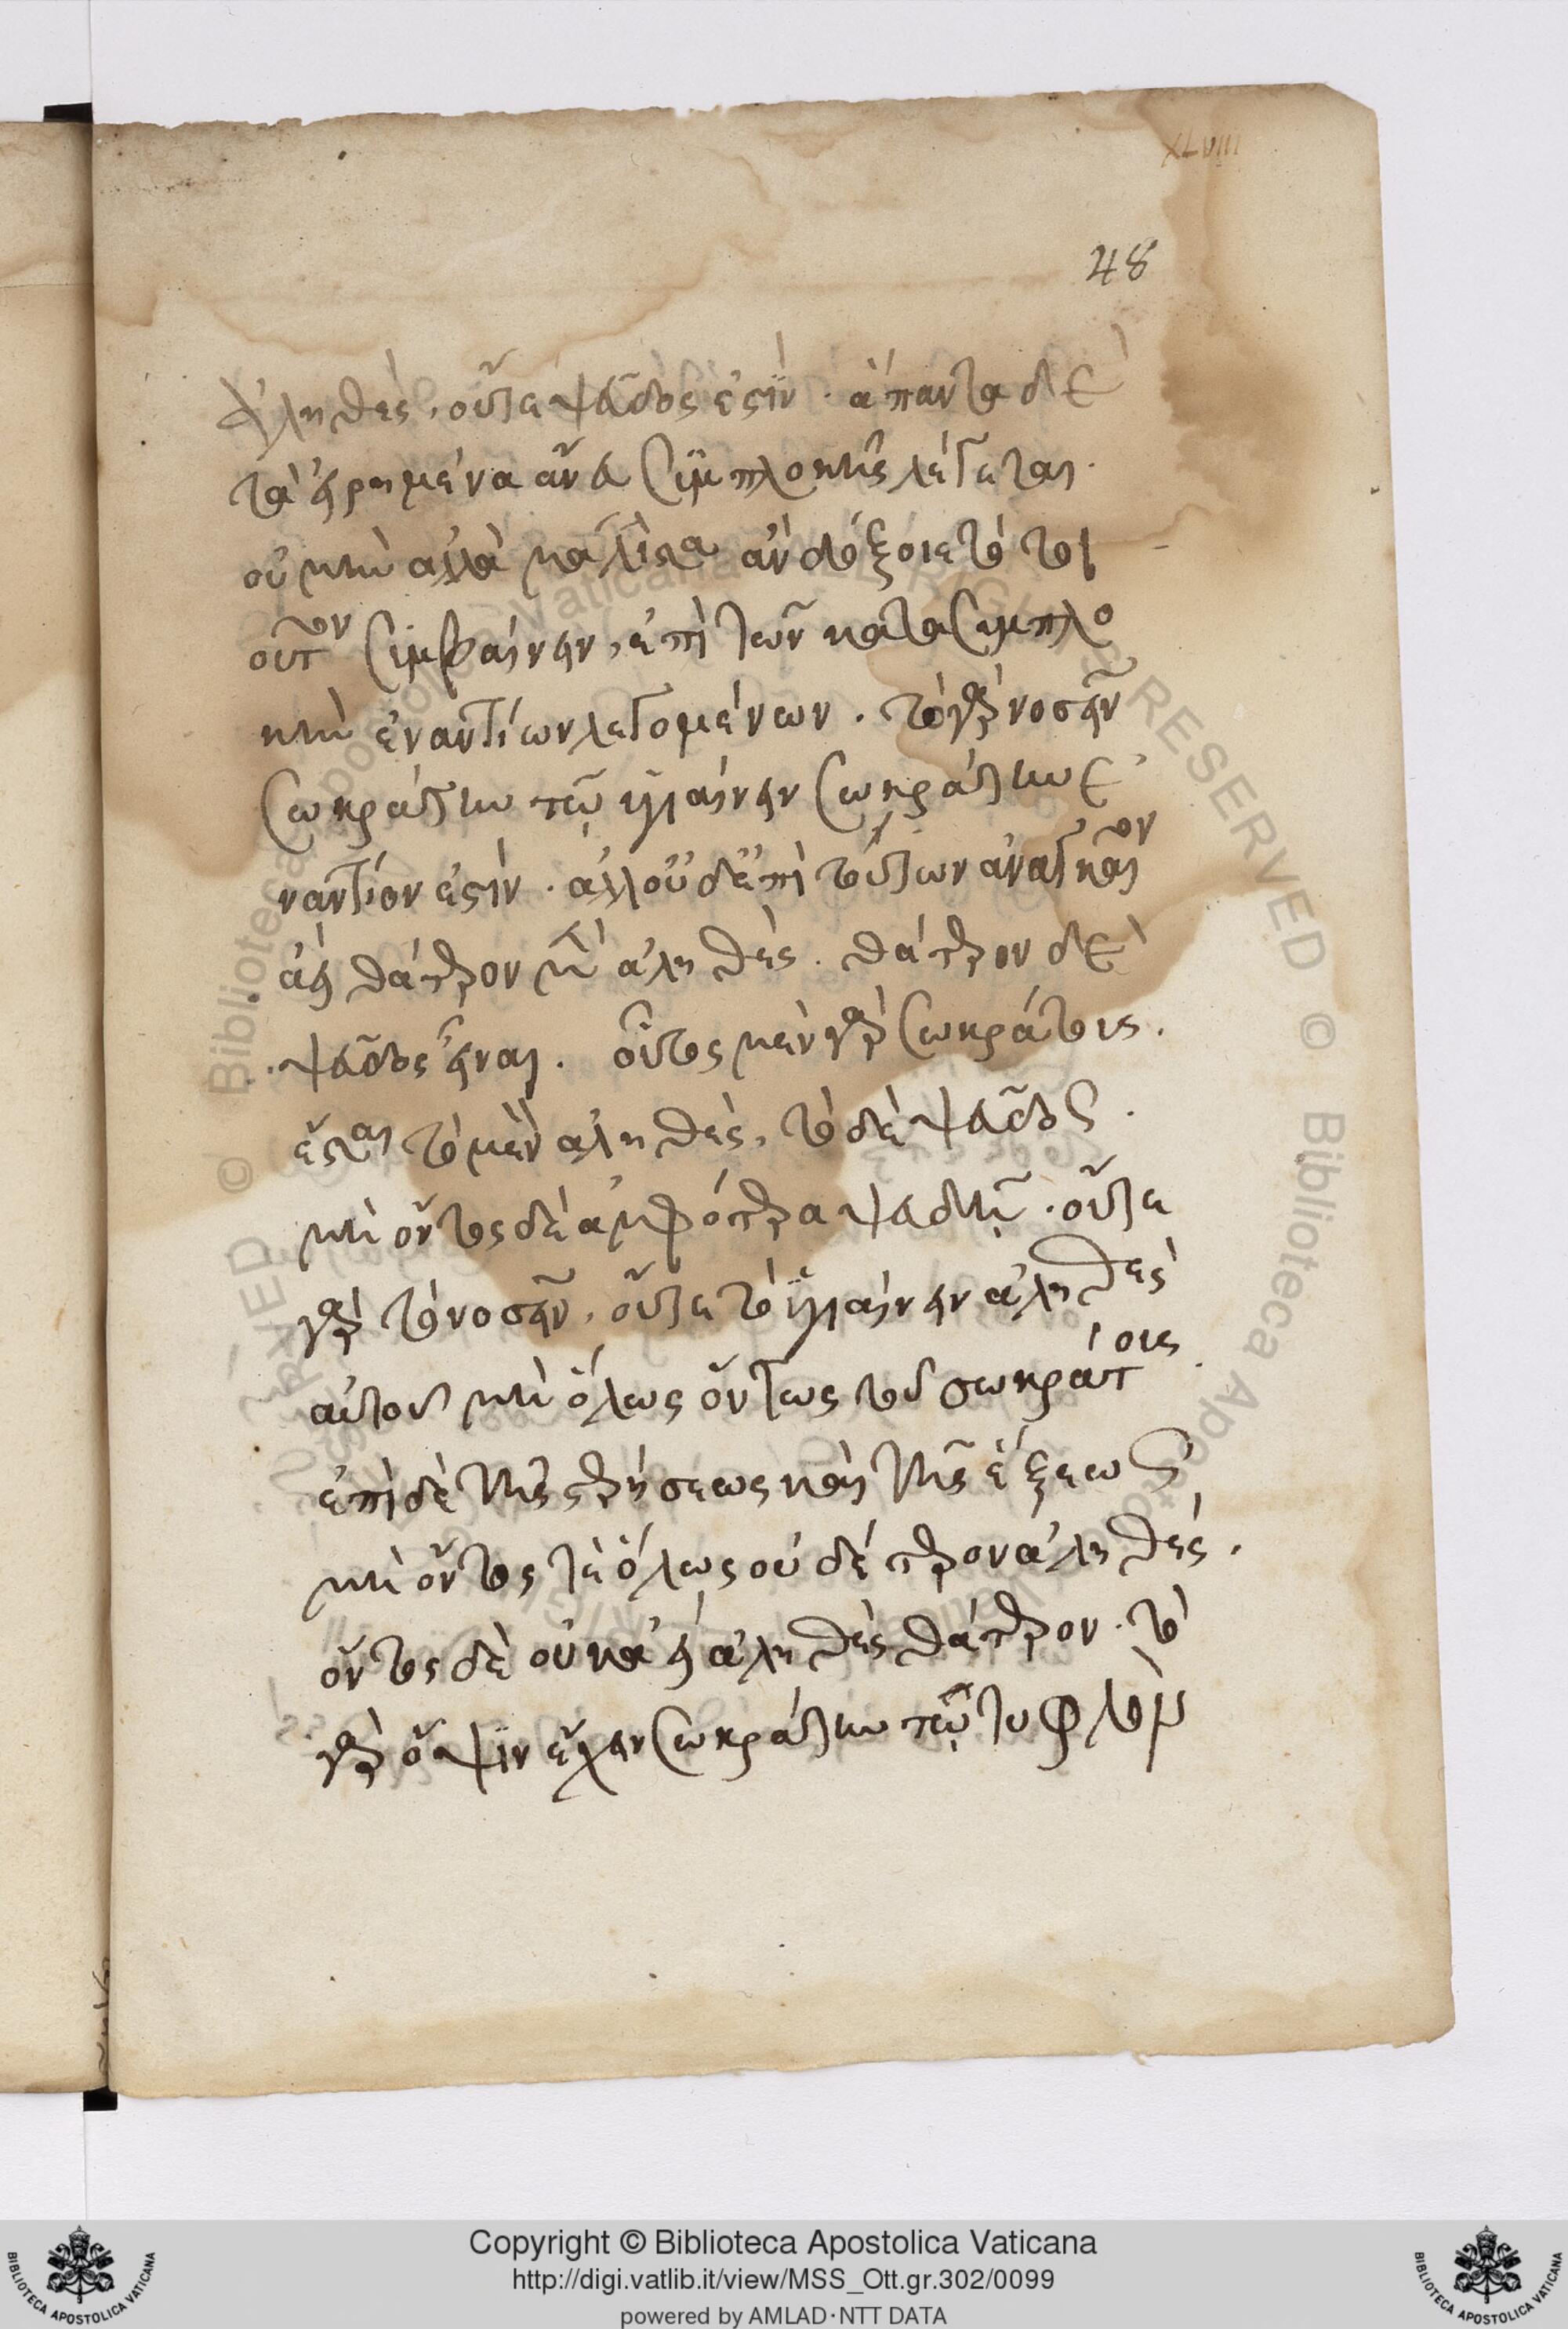 XLVIII
48
ἀληθές, οὔτε ψεῦδός ἐστιν · ἅπαντα δὲ
τὰ εἰρημένα ἄνευ συμπλοκῆς λέγεται ·
οὐ μὴν ἀλλὰ μάλιστα ἂν δόξοιε τὸ τοι
οῦτον συμβαίνειν, ἐπὶ τῶν κατὰ συμπλο
κὴν ἐναντίων λεγομένων · τὸ γὰρ νοσεῖν
Σωκράτην τῷ ὑγιαίνειν Σωκράτην ἐ
ναντίον ἐστίν · ἀλλ' οὐδ' ἐπὶ τούτων ἀναγκαῖον
ἀεὶ θάτερον μὲν ἀληθές · θάτερον δὲ
ψεῦδος εἶναι · ὄντος μὲν γὰρ Σωκράτους ·
ἔσται τὸ μὲν ἀληθές, τὸ δὲ ψεῦδος ·
μὴ ὄντος δὲ ἀμφότερα ψευδῆ · οὔτε
γὰρ τὸ νοσεῖν, οὔτε τὸ ὑγιαίνειν ἀληθὲς
αὐτοῦ μὴ ὅλως ὄντως τοῦ σωκράτους ·
ἐπὶ δὲ τῆς στερήσεως καὶ τῆς ἕξεως
μὴ ὄντος τὲ ὅλως οὐδέτερον ἀληθές ·
ὄντος δὲ οὐκ ἀεὶ ἀληθὲς θάτερον · τὸ
γὰρ ὄψιν ἔχειν Σωκράτην τῷ τυφλὸν
Copyright © Biblioteca Apostolica Vaticana
http://digi.vatlib.it/view/MSS_Ott.gr.302/0099
powered by AMLAD·NTT DATA